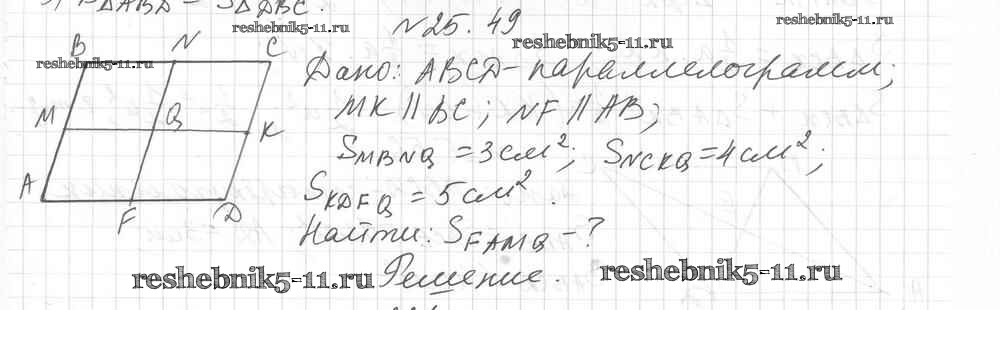 S△ABD = S△DBC.
reshebnik5-11.ru
reshebnik5-11.ru
N25.49
reshebnik5-11.ru
B N C
reshebnik5-11.ru
Дано: ABCD - параллелограмм;
M Q K
MK || BC; NF || AB;
SMBNQ = 3 см²; SNCKQ = 4 см²;
A F D
SKDFQ = 5 см².
Найти: SFAMQ - ?
reshebnik5-11.ru
Решение.
reshebnik5-11.ru